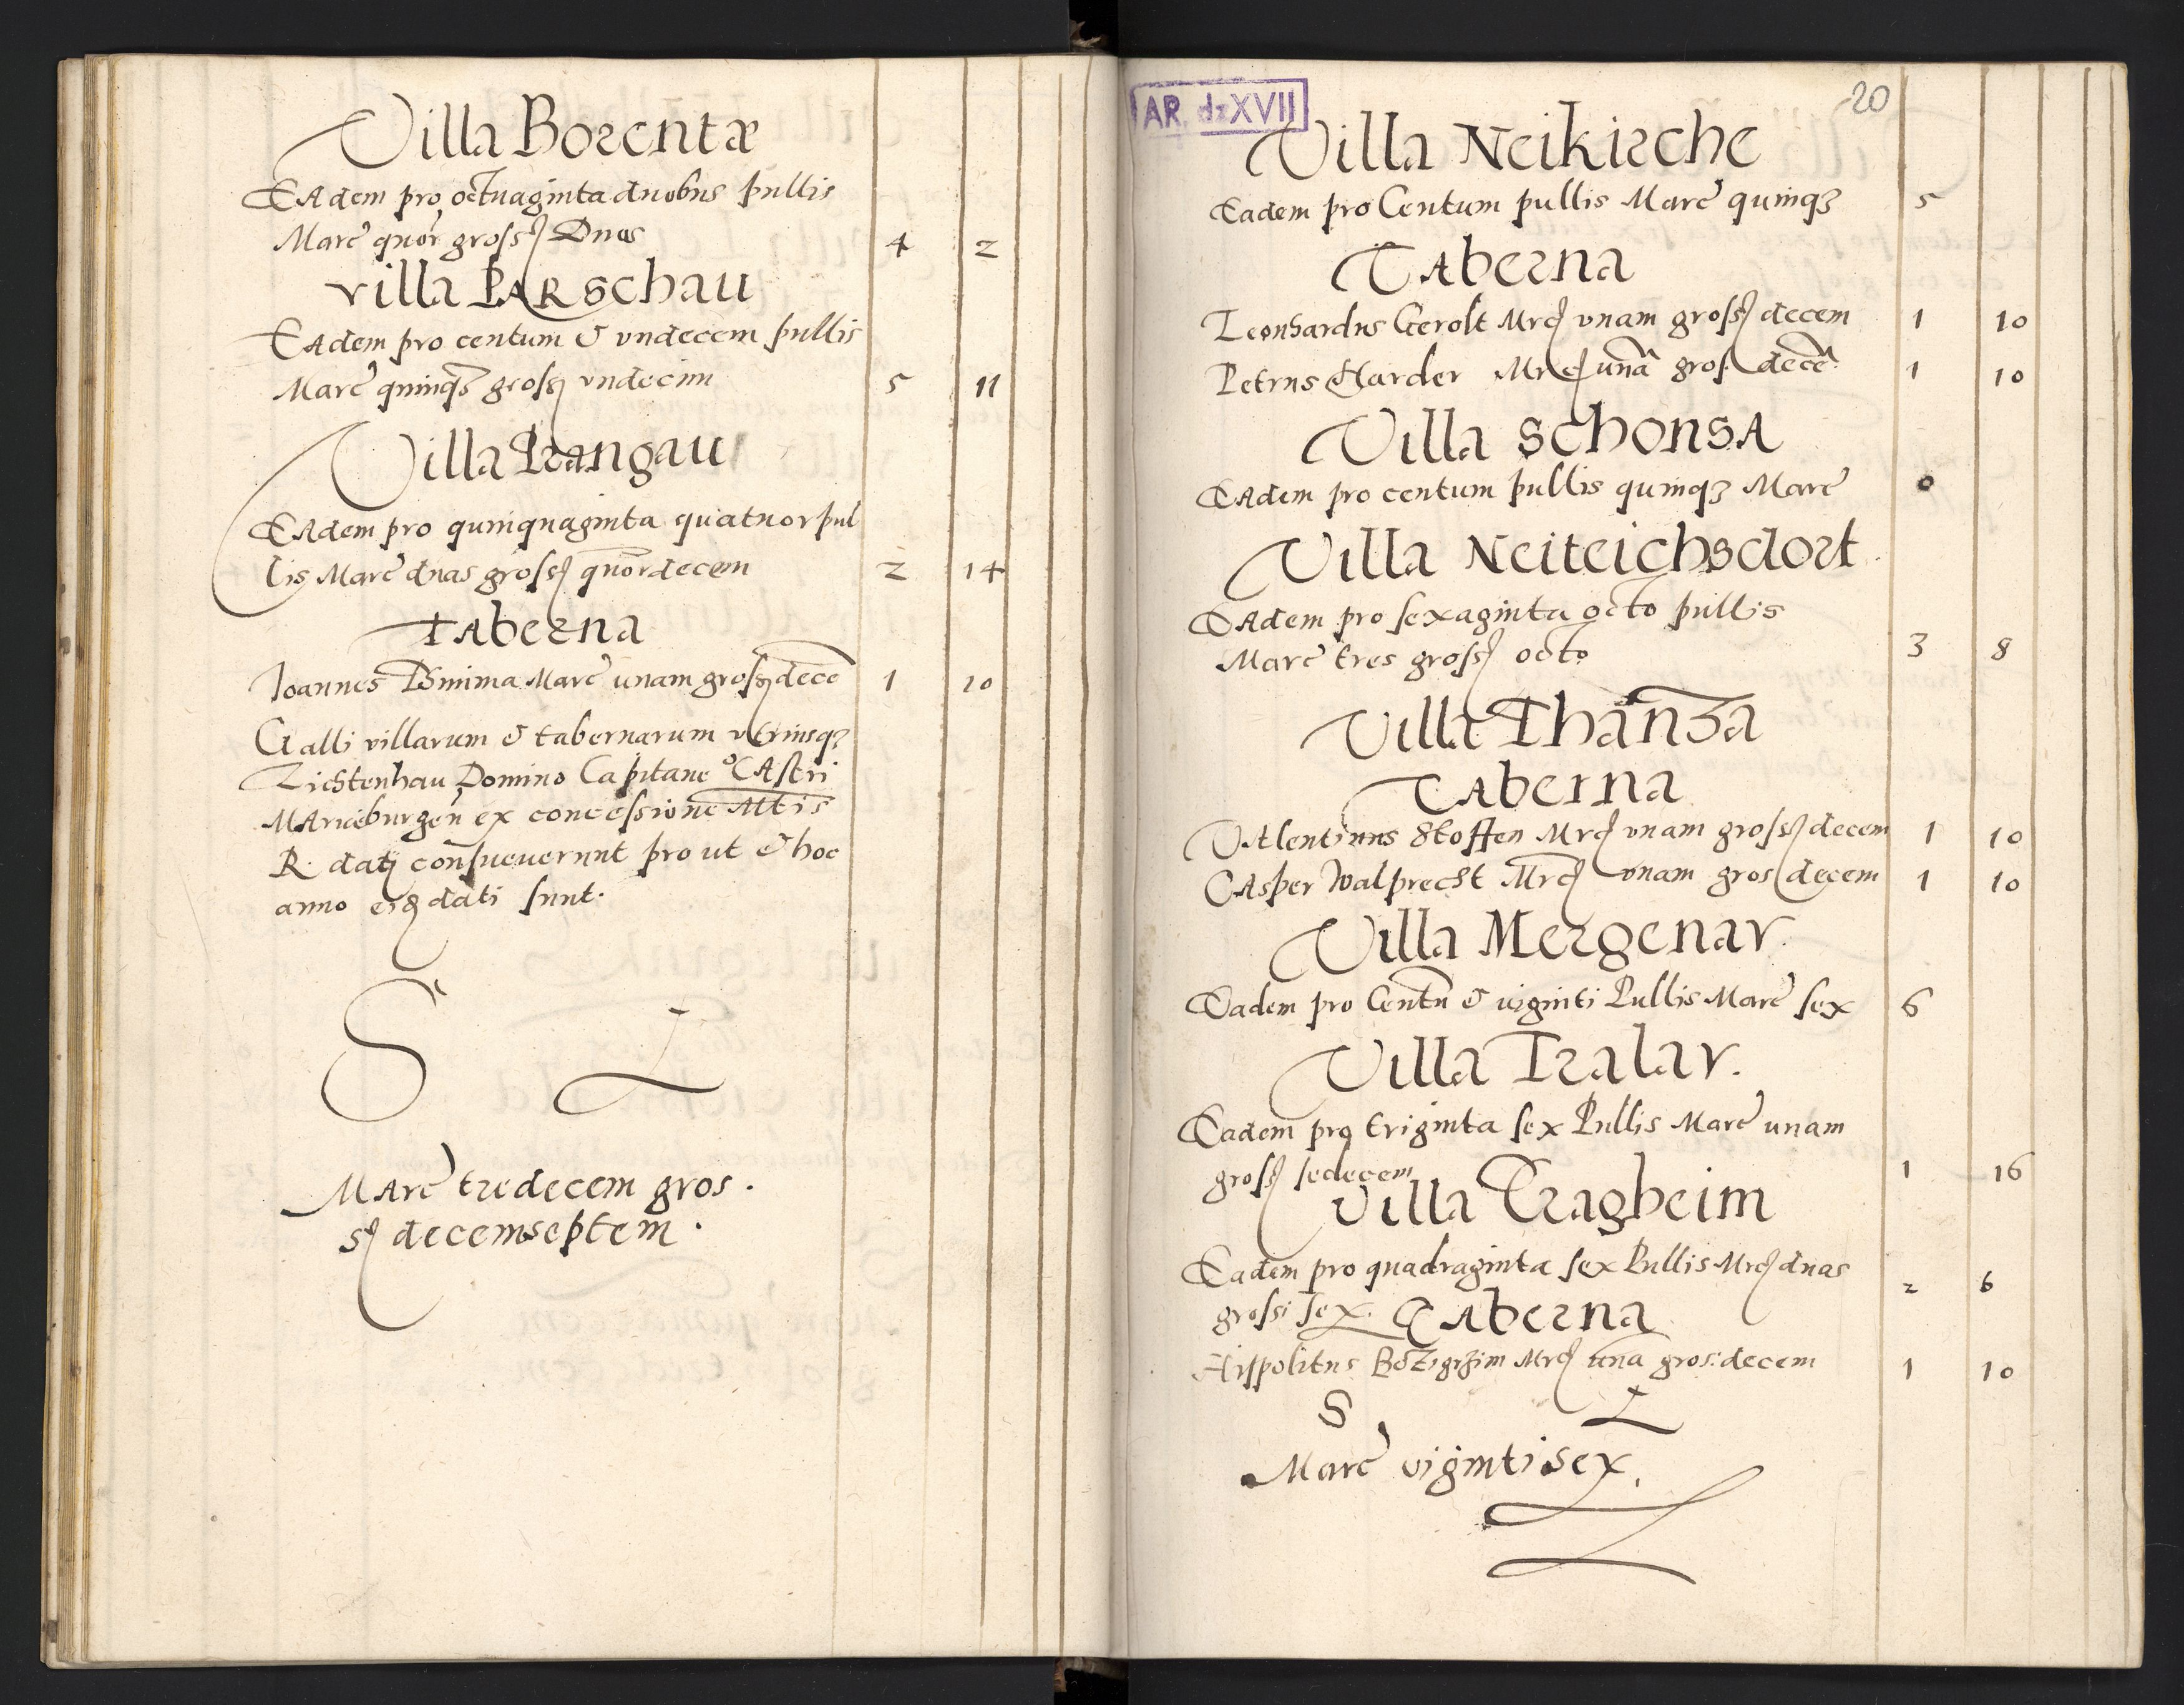 Villa Borentæ
Eadem pro octuaginta duobus pullis
Marc quor gross Duos 4 2
Villa Parschau
Eadem pro centum & vndecem pullis
Marc quinqȝ gross vndecim 5 11
Villa Prangau
Eadem pro quinquaginta quatuor pul
lis Marc duas gross quordecem 2 14
Taberna
Joannes Marc unam gross dece 1 10
Galli villarum & tabernarum utriusqȝ
Lichtenhau Domino Capitaneo Castri
Marieburgen ex concessione Mtis
R. dari consueuerunt pro ut & hoc
anno dati sunt.
S L
Marc tredecem gros.
s decemseptem.
AR dzXVII
20
Villa Neikirche
Eadem pro Centum pullis Marc quinqȝ 5
Taberna
Leonhardus Gerolt Mrc vnam gross decem 1 10
Petrus Harder Mrc unā gros decē 1 10
Villa Schonsa
Eadem pro centum pullis quinqȝ Marc 0
Villa Neiteichsdorf
Eadem pro sexaginta octo pullis
Marc tres gross octo 3 8
Villa Thanza
Taberna
Valentinus Stoffen Mrc vnam gross decem 1 10
Casper Walprecht Mrc vnam gros decem 1 10
Villa Mergenav
Eadem pro Centū & viginti Pullis Marc sex 6
Villa Tralav.
Eadem pro triginta sex Pullis Marc unam
gross sedecem 1 16
Villa Tragheim
Eadem pro quadraginta sex Pullis Mrc duas
grossi sex. 2 6
Taberna
Hippolitus Mrc una gros: decem 1 10
S L
Marc vigintisex.